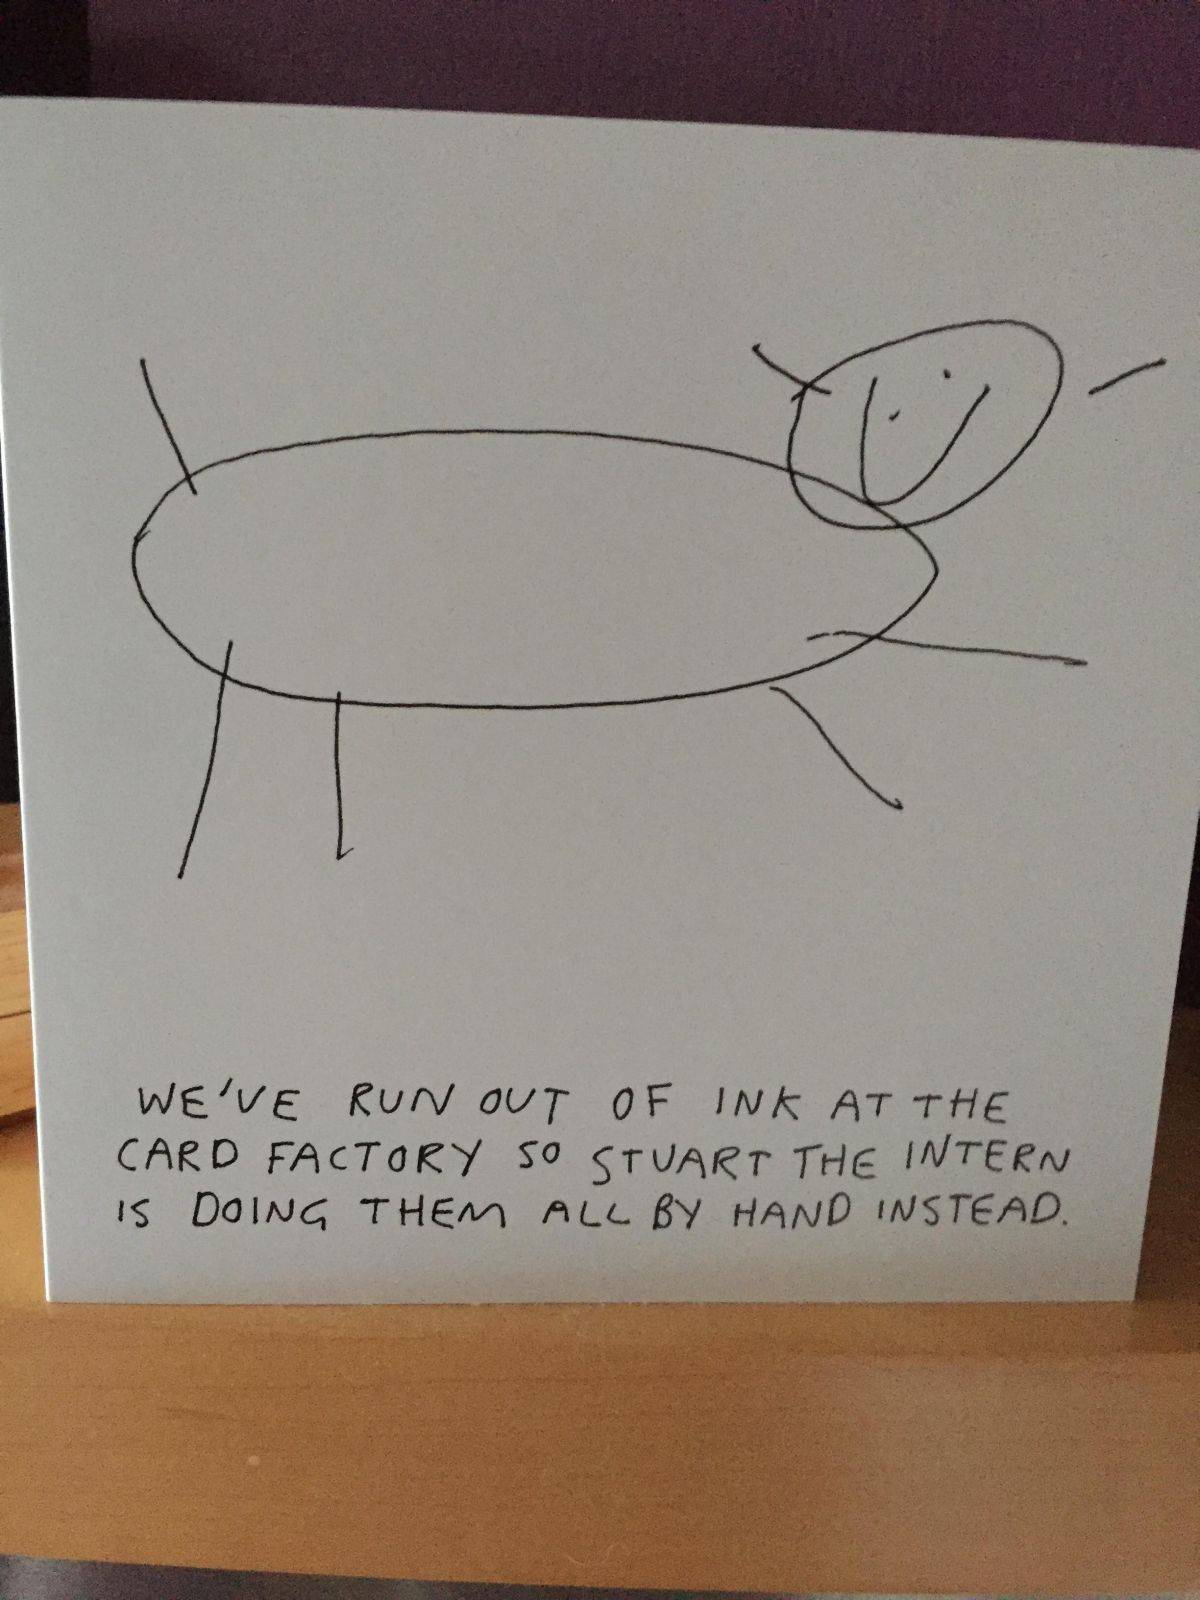 WE'VE RUN OUT OF INK AT THE
CARD FACTORY SO STUART THE INTERN
IS DOING THEM ALL BY HAND INSTEAD.